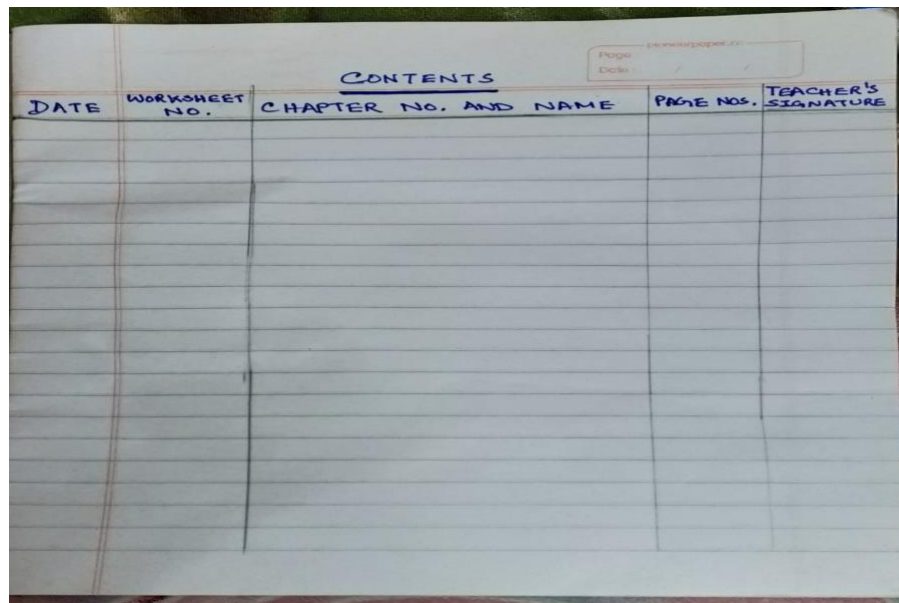 pioneerpaper.co
Page
Date / /
CONTENTS
DATE WORKSHEET NO. CHAPTER NO. AND NAME PAGE NOS. TEACHER'S SIGNATURE